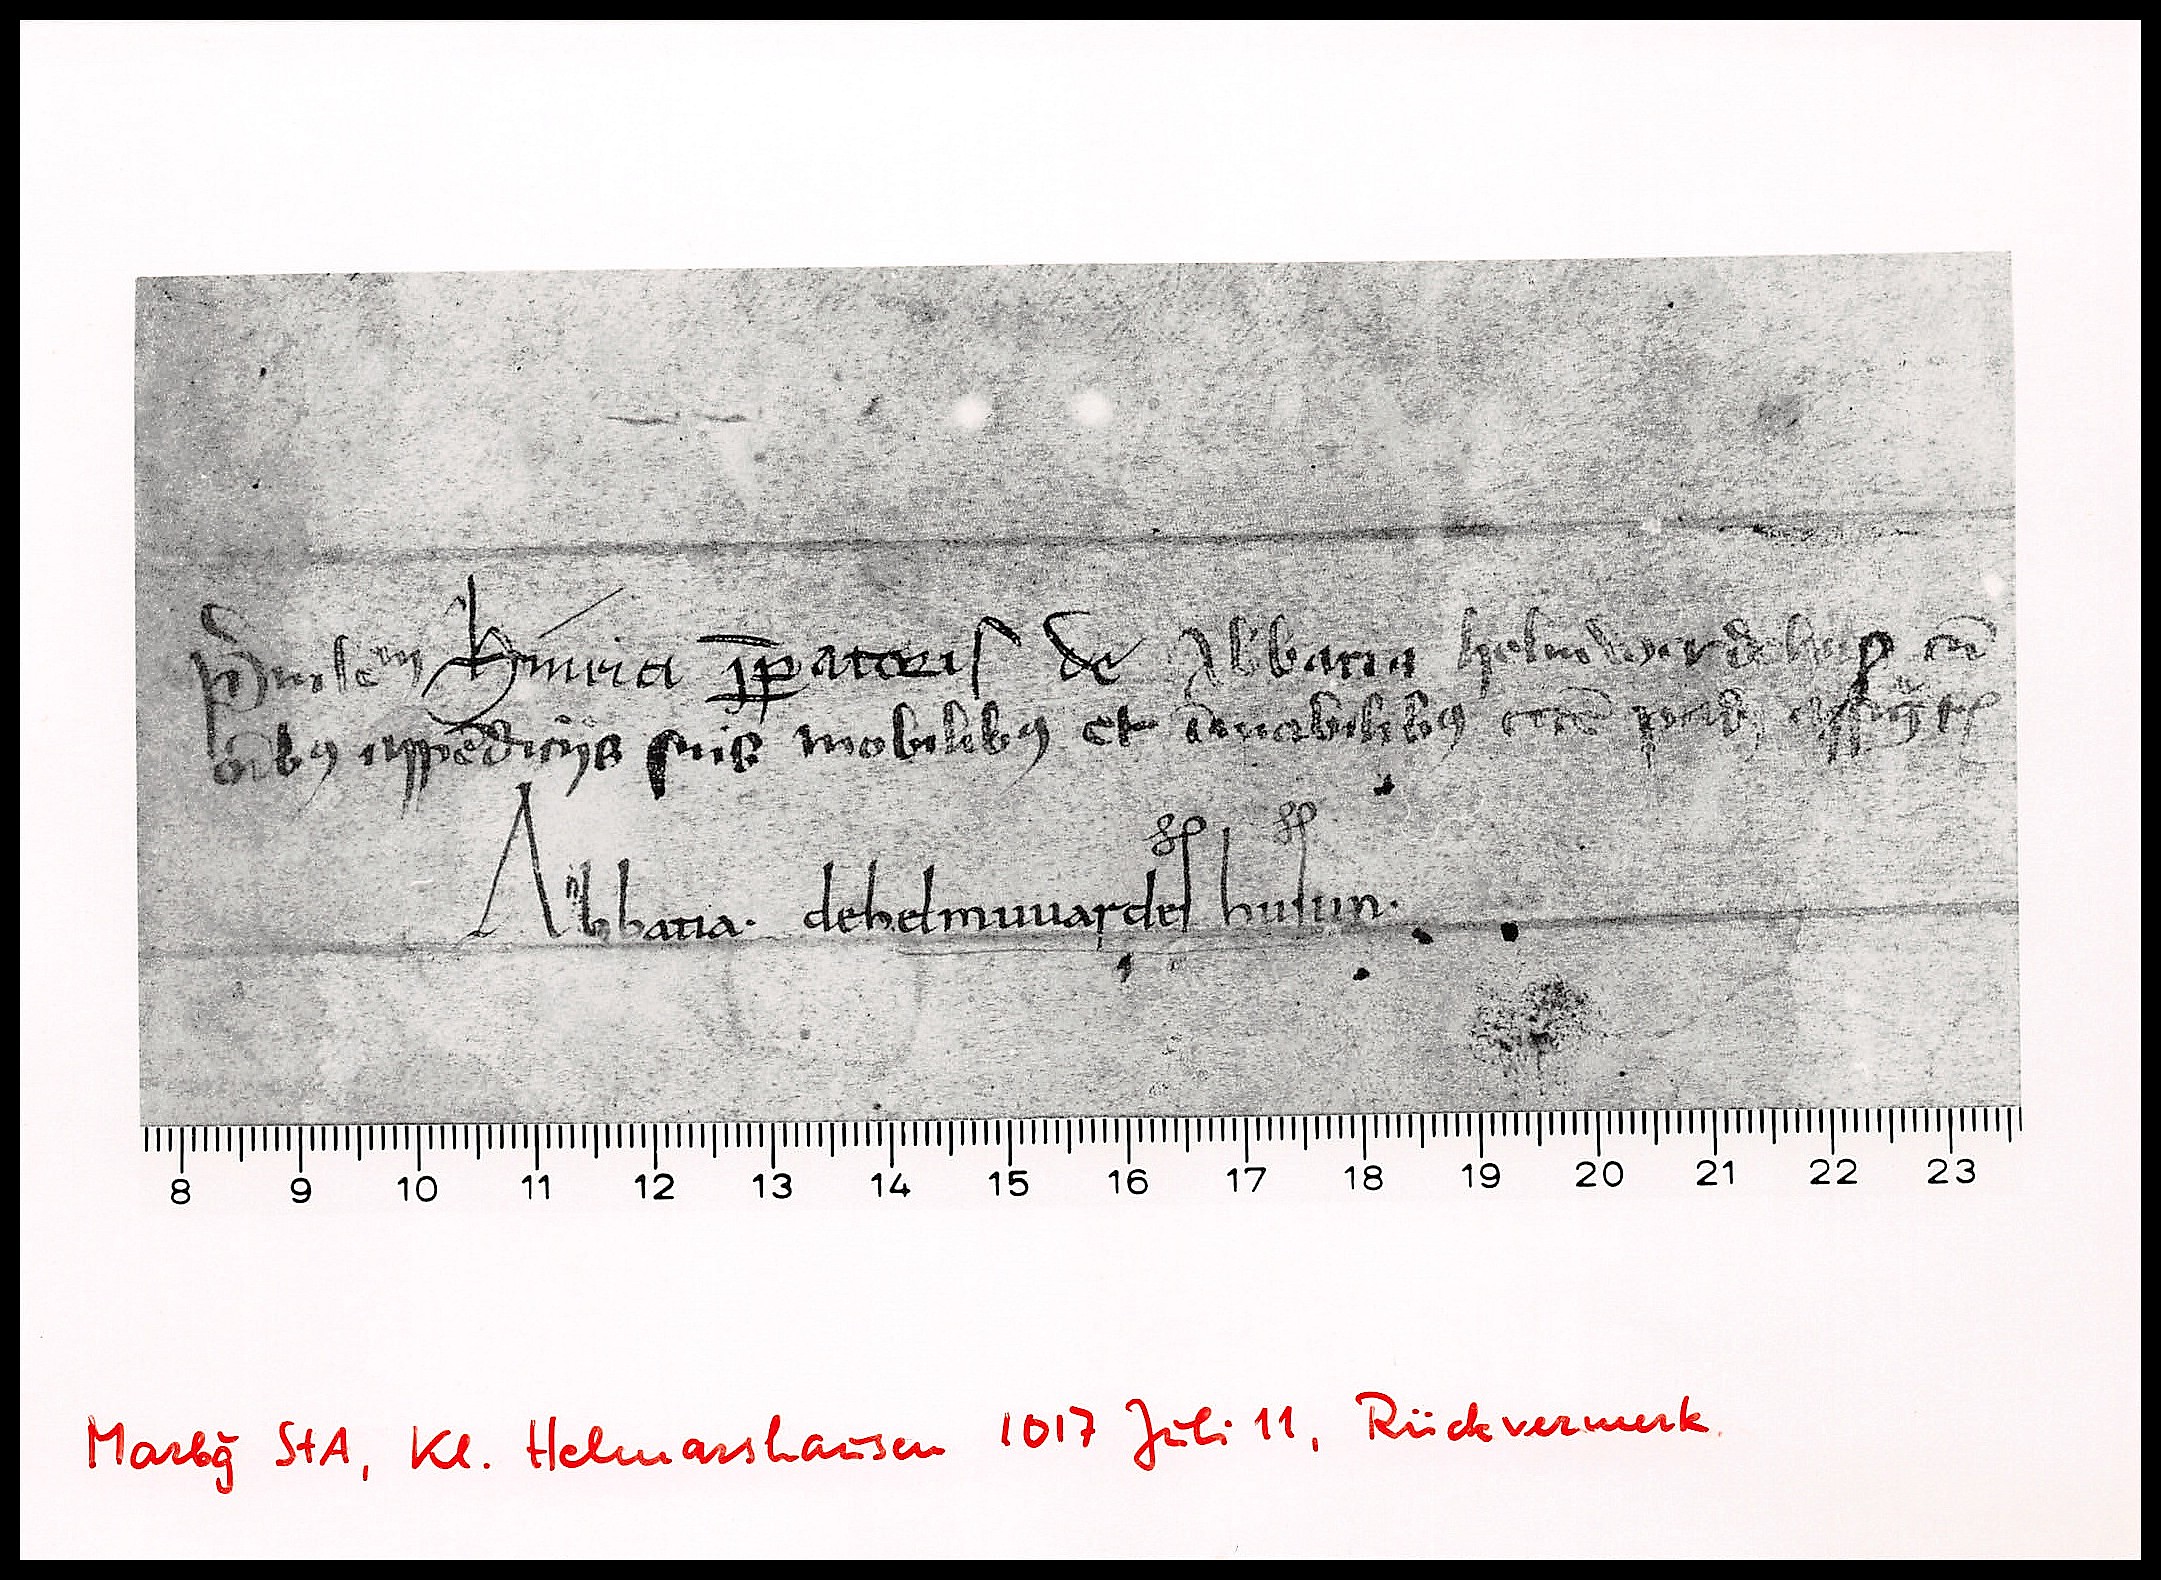 hinrici īp̄atoris de Abbatia helmwerdehusꝫ cū
oībꝫ appēdicijs suis mobilibꝫ et īmobilibꝫ
Abbatia. dehelmuuardeshusun.
8 9 10 11 12 13 14 15 16 17 18 19 20 21 22 23
Marbg̃ StA, Kl. Helmarshausen 1017 Juli 11, Rückvermerk.